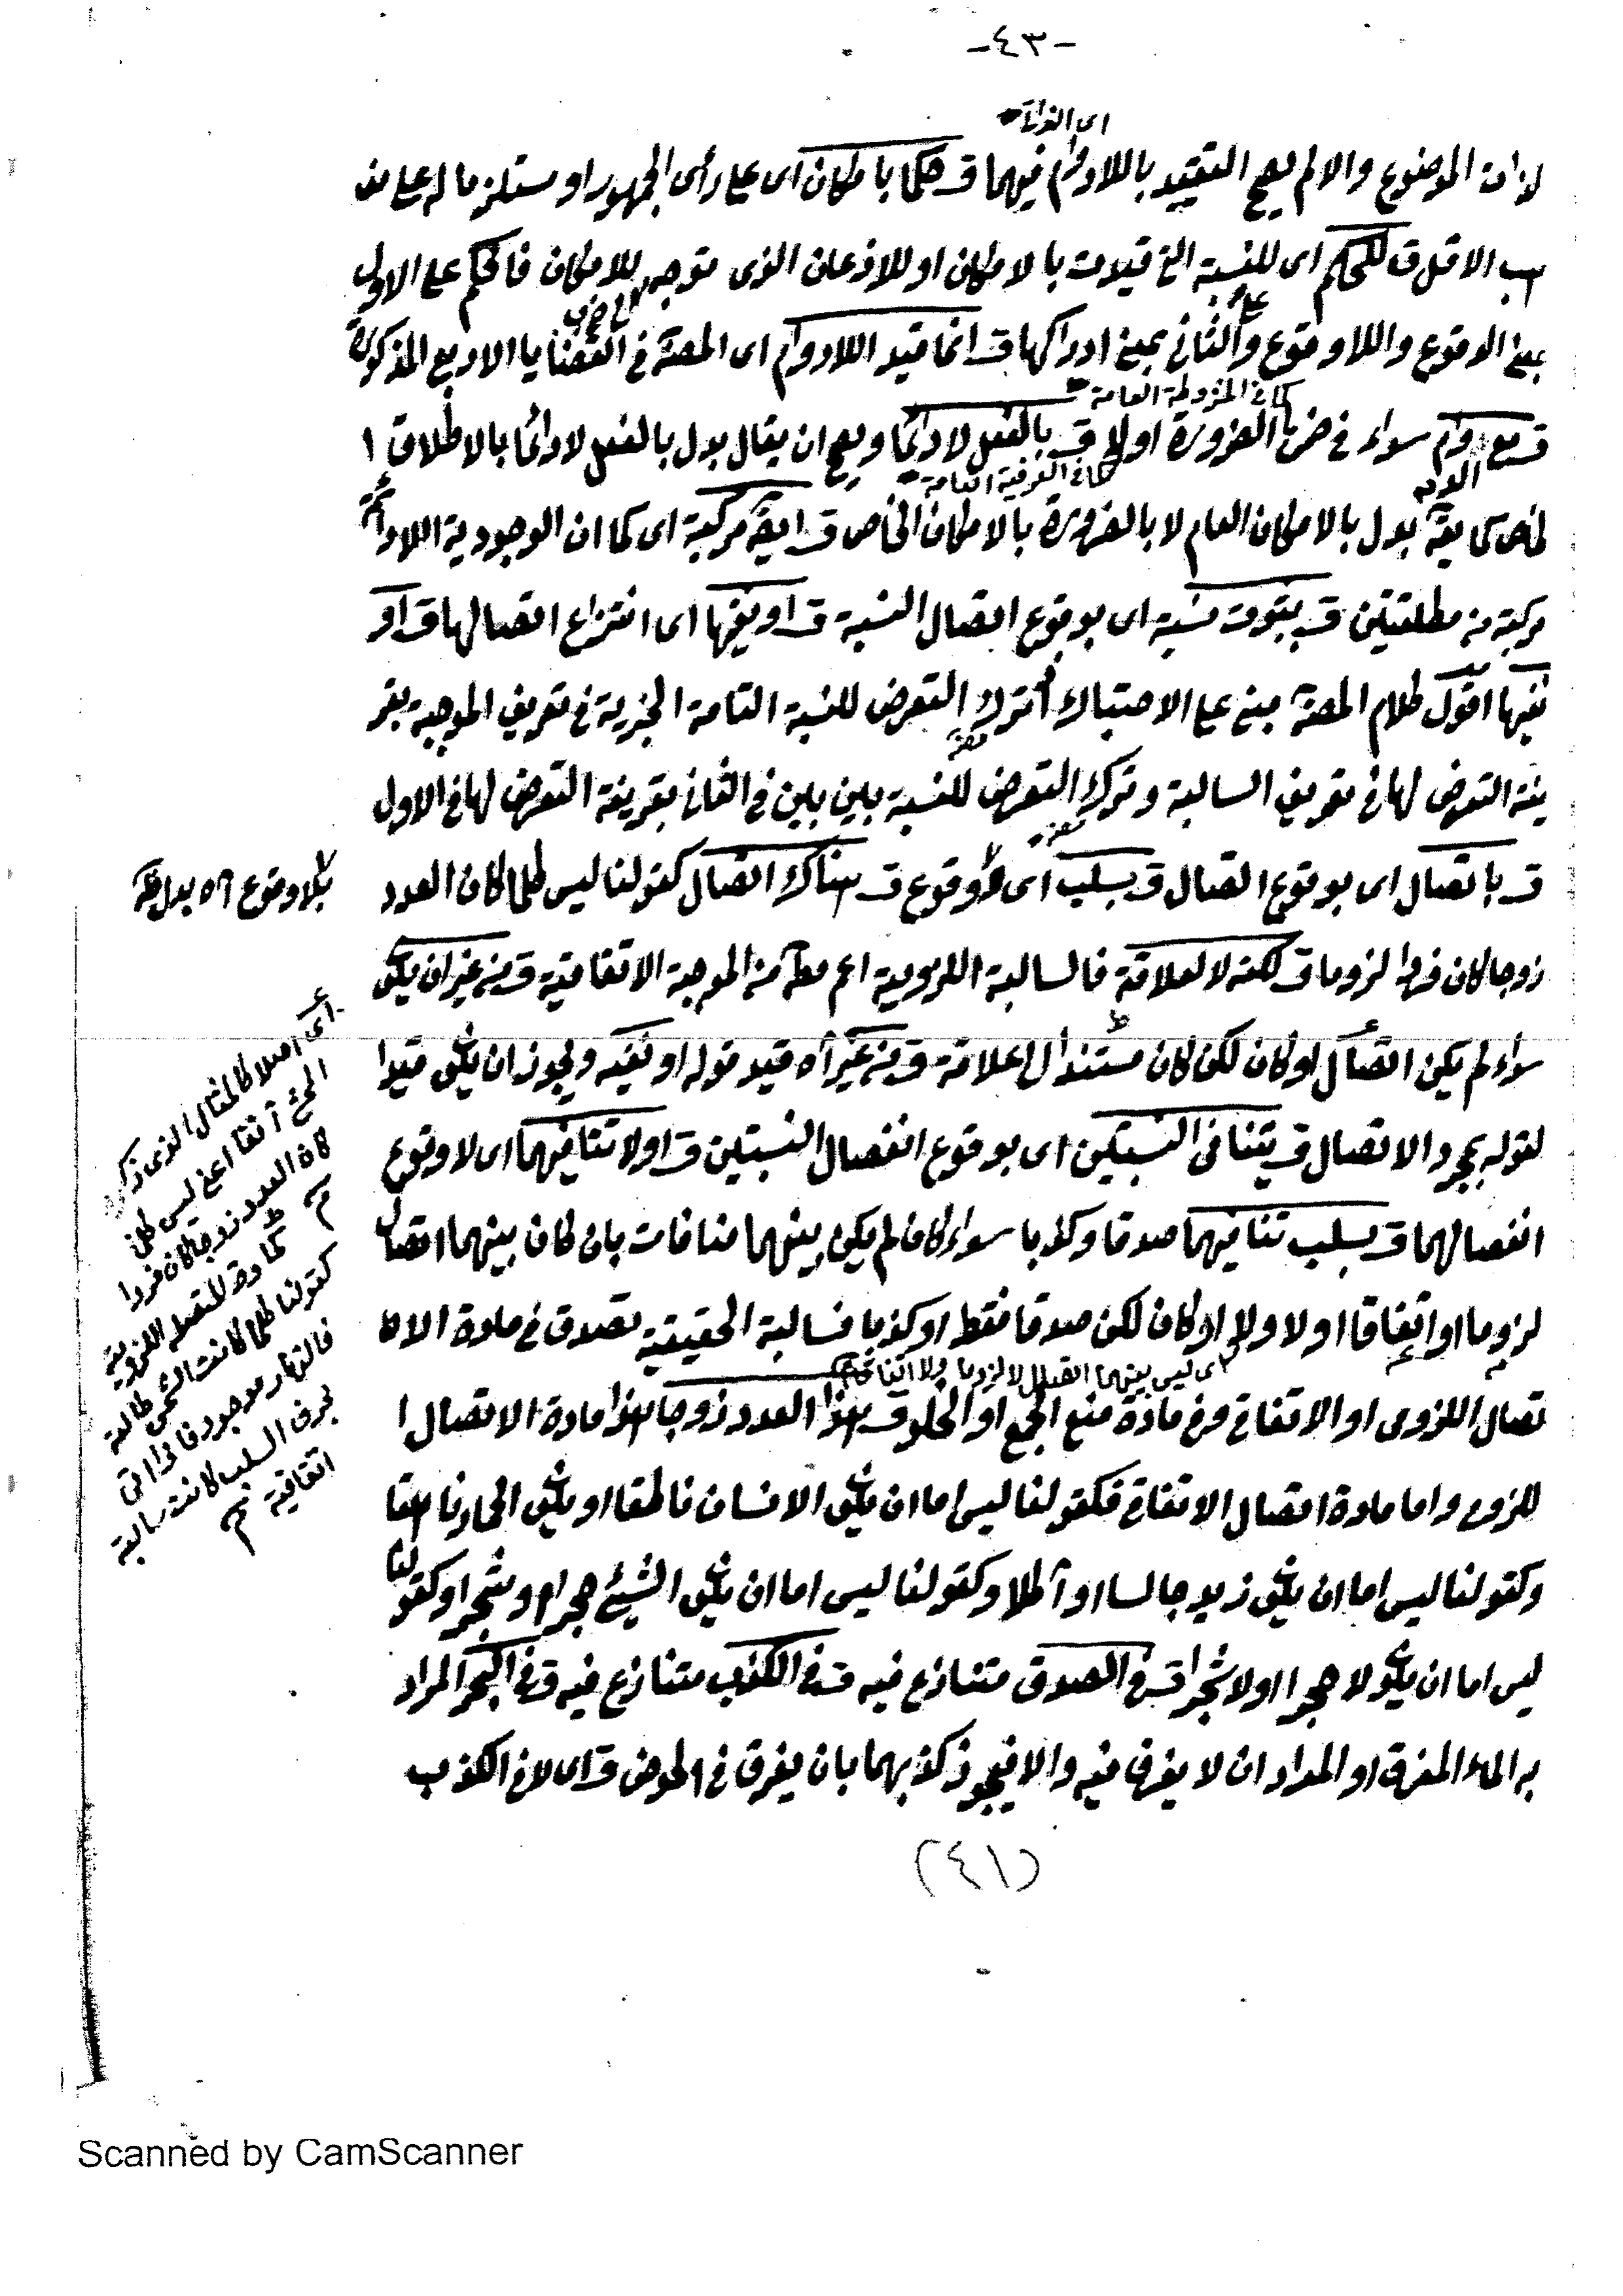 -٤٣-
اى الذاتى
لذات الموضوع والا لم يصح التقييد باللادوام فيهما ق حكما بامكان اى على رأى الجمهور او مستلزما له على مذ
هب الاقل ق للحكم اى للنسبة التى قيدت بالامكان او للاذعان الذى متوجه للامكان فالحكم على الاول
بمعنى الوقوع واللاوقوع وعلى الثانى بمعنى ادراكها ق انما قيد اللادوام اى المص فى القضايا الاربع المذكورة
كما فى المشروطة العامة
ق مع دوام سواء فى ضمن الضرورة اولا ق بالفعل لا دائما ويصح ان يقال بدل بالفعل لا دائما بالاطلاق ا
كما فى العرفية العامة
لخاص كما يقال بدل بالامكان العام لا بالضرورة بالامكان الخاص ق ايضا مركبة اى كما ان الوجودية اللادائمة
مركبة من مطلقتين ق بثبوت نسبة اى بوقوع اتصال النسبة ق او نفيها اى انتزاع اتصالها ق او
نفيها اقول كلام المص مبنى على الاحتباك اترك التعرض للنسبة التامة الخبرية فى تعريف الموجبة بقر
ينة التعرض لها فى تعريف السالبة وترك التعرض للنسبة بين بين فى الثانى بقرينة التعرض لها فى الاول
ق باتصال اى بوقوع اتصال ق بسلب اى لا وقوع ق هناك اتصال كقولنا ليس كلما كان العدد
بلا وقوع اه بدل
زوجا كان فردا لزوما ق لكنه لا لعلاقة فالسالبة اللزومية اعم مطلقا من الموجبة الاتفاقية ق من غير ان يكون
سواء لم يكن اتصال او كان لكن كان مستندا الى علاقة ق من غير اه قيد قوله او نفيه ويجوز ان يكون قيدا
لقوله بمجرد الاتصال ق بتنافى النسبتين اى بوقوع انفصال النسبتين ق او لا تنافيهما اى لا وقوع
انفصالهما ق بسلب تنافيهما صدقا وكذبا سواء كان لم يكن بينهما منافات بان كان بينهما اتصال
لزوما او اتفاقا اولا ولا او كان لكن صدقا فقط او كذبا فسالبة الحقيقية تصدق فى مادة الا
اى ليس بينهما اتصال لا لزوما ولا اتفاقا
تصال اللزومى او الاتفاقى وفى مادة منع الجمع او الخلو ق هذا العدد زوجا هذا مادة الاتصال ا
للزومى واما مادة اتصال الاتفاقى فكقولنا ليس اما ان يكون الانسان ناطقا او يكون الحمار ناهقا
وكقولنا ليس اما ان يكون زيد جالسا او آكلا وكقولنا ليس اما ان يكون الشيئ حجرا او شجرا وكقولنا
ليس اما ان يكون لا حجرا او لا شجرا ق فى الصدق متنازع فيه ق فى الكذب متنازع فيه ق فى البحر المراد
به الماء المغرق او المراد ان لا يغرق فيه والا فيجوز كذبهما بان يغرق فى الحوض ق اى لا فى الكذب
اى اصلا كالمثال الذى ذكره
المحشى آنفا اعنى ليس كلما
كان العدد زوجا كان فردا
كمادة المتصلة اللزومية
كقولنا كلما كانت الشمس طالعة
فالنهار موجود فاذا اتى
بحرف السلب كانت سالبة
اتفاقية
(٤١)
Scanned by CamScanner